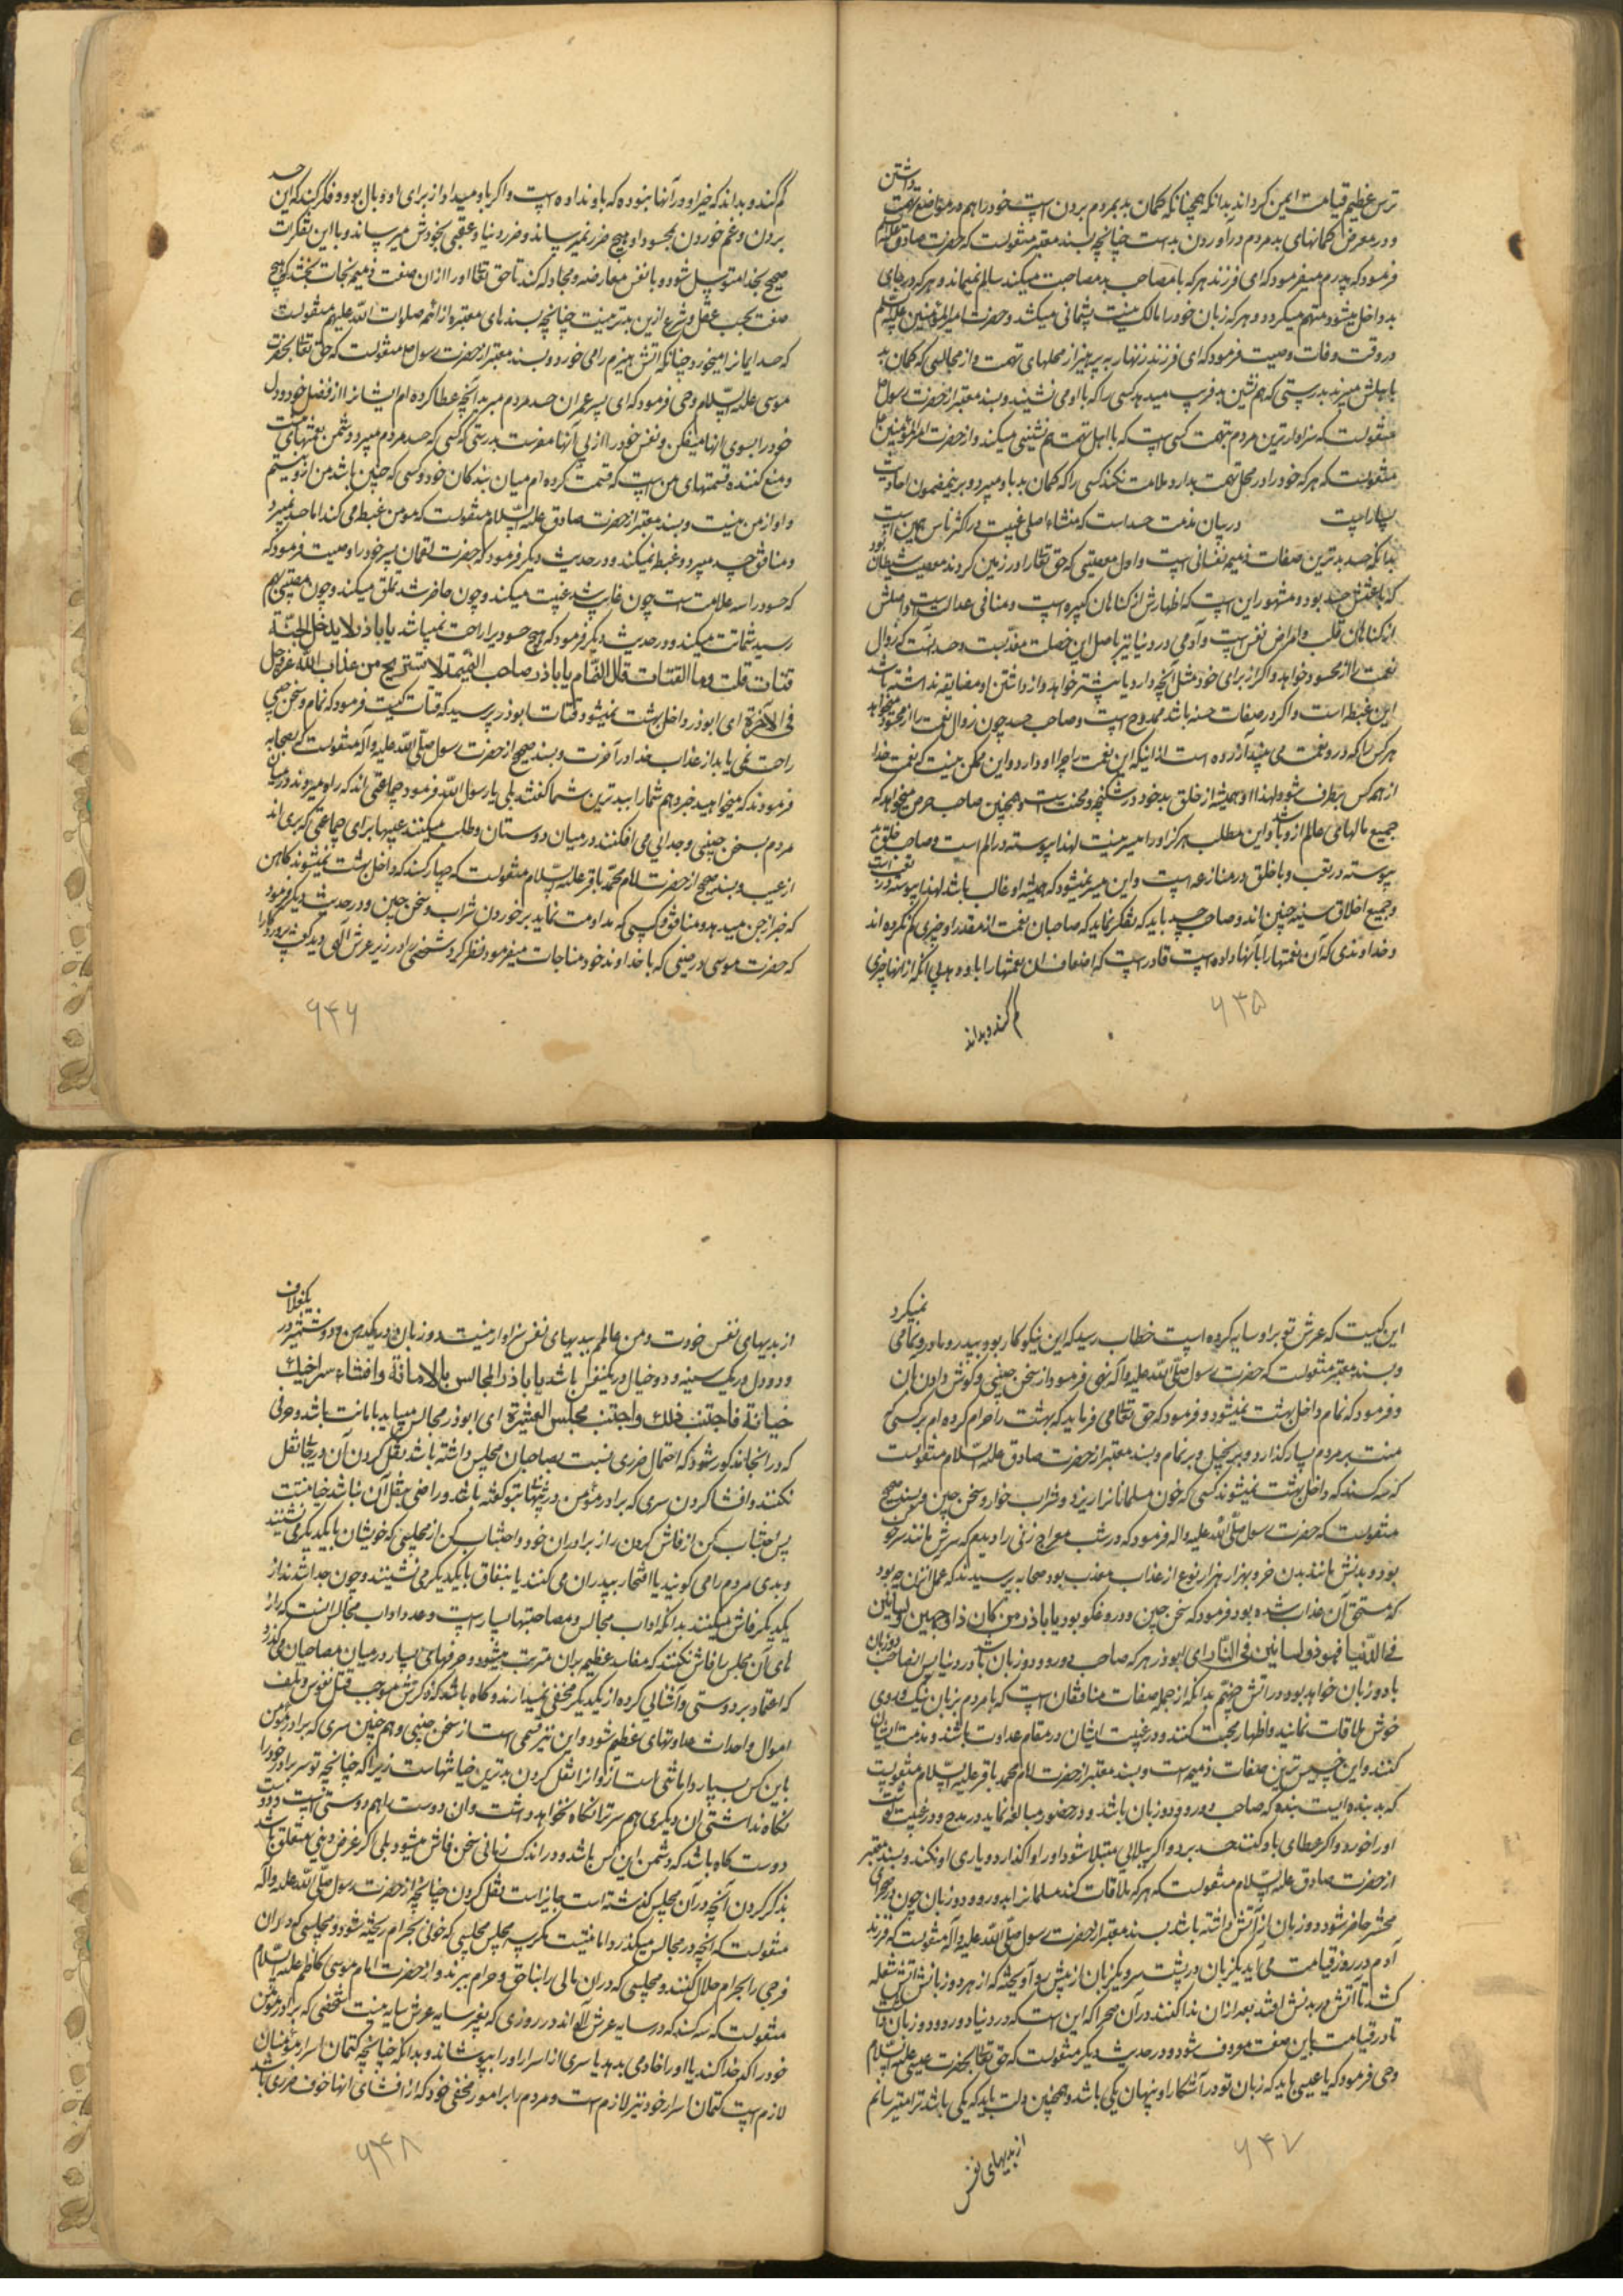 داشتن
ترس عظیم قیامت ایمن کرداند بدانکه همچنانکه کمان بد بمردم بردن است خود را هم در مواضع تهمت
و در معرض کمانهای بد مردم در آوردن بد است چنانچه بسند معتبر منقولست که حضرت صادق علیه السلام
فرمود که پدرم میفرمود که ای فرزند هر که با مصاحب بد مصاحبت میکند سالم نمیماند و هر که در جاهای
بد داخل میشود متهم میکردد و هر که زبان خود را مالک نیست پشمانی میکشد و حضرت امیر المؤمنین علیه السلم
در وقت وفات وصیت فرمود که ای فرزند زنهار به پرهیز از محلهای تهمت و از مجالسی که کمان بد
باهلش میبرند بدرستی که هم نشین بد فریب میدهد کسی را که با او می نشیند و بسند معتبر از حضرت رسول ص
منقولست که سزاوارترین مردم بتهمت کسی است که با اهل تهمت هم نشینی میکند و از حضرت امیر المؤمنین ع
منقولست که هر که خود را در محل تهمت بدارد ملامت نکند کسی را که کمان بد باو میبرد و برینمضمون احادیث
بسیار است در بیان مذمت حسد است که منشاء اصلی غیبت در اکثر ناس همین است
بدانکه حسد بدترین صفات ذمیمه نفسانی است و اول معصیتی که حق تعالی را در زمین کردند معصیت شیطان بود
که باعثش حسد بود و مشهور این است که اظهارش از کناهان کبیره است و منافی عدالت است و اصلش
از کناهان قلب و امراض نفس است و آدمی در دنیا نیز باصل این خصلت معذبست و حسد آنست که زوال
نعمت را از محسود خواهد و اکر از برای خود مثل آنچه دارد یا بیشتر خواهد و از داشتن او مضایقه نداشته باشد
این غبطه است و اکر در صفات حسنه باشد ممدوح است و صاحب حسد چون زوال نعمت را از محسود میخواهد
هر کس را که در و نعمت می بیند آزرده است از اینکه این نعمت را چرا او دارد و این ممکن نیست که نعمت خدا
از همه کس بر طرف شود لهذا او همیشه از خلق بد خود در شکنجه و محنت است و همچنین صاحب حرص میخواهد که
جمیع مالهای عالم از و باشد و این مطلب هرکز او را میسر نیست لهذا پیوسته در الم است و صاحب خلق بد
پیوسته در تعب و با خلق در منازعه است و این میسر نمیشود که همیشه او غالب باشد لهذا پیوسته در تعب است
و جمیع اخلاق سیئه چنین اند و صاحب حسد باید که تفکر نماید که صاحبان نعمت از مقدر او چیزی کم نکرده اند
و خداوندی که آن نعمتها را بآنها داده است قادر است که اضعاف ان نعمتها را باو بدهد بی انکه از انها چیزی
کم کند و بداند
۶۴۵
حسد
کم کند و بداند که خیر او در آنها نبوده که باو نداده است و اکر باو میداد از برای او وبال بود و فکر کند که این
بردن و غم خوردن بمحسود او هیچ ضرر نمیرساند و ضرر دنیا و عقبی بخودش میرساند و با این تفکرات
صحیح بخدا متوسل شود و با نفس معارضه و مجادله کند تا حق تعالی او را از ان صفت ذمیمه نجات بخشد که هیچ
صفت بحسب عقل و شرع ازین بدتر نیست چنانچه بسند های معتبر از ائمه صلوات الله علیهم منقولست
که حسد ایمانرا میخورد چنانکه آتش هیزم را می خورد و بسند معتبر از حضرت رسول ص منقولست که حق تعالی بحضرت
موسی علیه السلام وحی فرمود که ای پسر عمران حسد مردم مبر بر آنچه عطا کرده ام ایشانرا از فضل خود و دل
خود را بسوی انها میفکن و نفس خود را از پی آنها مفرست بدرستی که کسی که حسد مردم میبرد دشمن نعمتهای منست
و منع کننده قسمتهای من است که قسمت کرده ام میان بندکان خود و کسی که چنین باشد من از و نیستم
و او از من نیست و بسند معتبر از حضرت صادق علیه السلام منقولست که مومن غبطه می کند اما حسد نمیبرد
و منافق حسد میبرد و غبطه نمیکند و در حدیث دیکر فرمود که حضرت لقمان پسر خود را وصیت فرمود که
که حسود را سه علامت است چون غایب شد غیبت میکند و چون حاضر شد تملق میکند و چون مصیبتی بهم
رسید شماتت میکند و در حدیث دیکر فرمود که هیچ حسود یرا راحت نمیباشد یا باذر لا یدخل الجنة
قتات قلت و ما القتات قال النمّام یا باذر صاحب النمیمة لا یستریح من عذاب الله عز و جل
فی الآخرة ای ابوذر داخل بهشت نمیشود قتات ابوذر پرسید که قتات کیست فرمود که نمام و سخن چین
راحت نمی یابد از عذاب خدا در آخرت و بسند صحیح از حضرت رسول صلی الله علیه و اله منقولست که بصحابه
فرمودند که میخواهید خبر دهم شما را ببدترین شما کفتند بلی یا رسول الله فرمود جماعتی اند که راه میروند در میان
مردم بسخن چینی و جدائی می افکنند در میان دوستان و طلب میکنند عیبها برای جماعتی که بری اند
از عیب و بسند صحیح از حضرت امام محمد باقر علیه السلام منقولست که چهار کسند که داخل بهشت نمیشوند کاهن
که خبر از جن میدهد و منافق و کسی که مداومت نماید بر خوردن شراب و سخن چین و در حدیث دیکر فرمود
که حضرت موسی در حینی که با خداوند خود مناجات میفرمود نظر کرد شخصی را در زیر عرش آلهی دید کفت پروردکارا
۶۴۶
نمیکرد
این کیست که عرش تو بر او سایه کرده است خطاب رسید که این نیکو کار بود به پدر و مادر و نمامی
و بسند معتبر منقولست که حضرت رسول صلی الله علیه و اله نهی فرمود از سخن چینی و کوش دادن بان
و فرمود که نمام داخل بهشت نمیشود و فرمود که حق تعالی می فرماید که بهشت را حرام کرده ام بر کسی که
منت بر مردم بسیار کذارد و بر بخیل و بر نمام و بسند معتبر از حضرت صادق علیه السلام منقولست
که سه کسند که داخل بهشت نمیشوند کسی که خون مسلمانانرا ریزد و شراب خوار و سخن چین و بسند صحیح
منقولست که حضرت رسول صلی الله علیه و اله فرمود که در شب معراج زنی را دیدم که سرش مانند سر خوک
بود و بدنش مانند بدن خر و بهزار هزار نوع از عذاب معذب بود صحابه پرسیدند که عمل انزن چه بود
که مستحق آن عذاب شده بود فرمود که سخن چین و دروغکو بود یا باذر من کان ذا وجهین و لسانین
فی الدنیا فهو ذو لسانین فی النار ای ابوذر هر که صاحب دو رو و دو زبان باشد در دنیا پس او صاحب دو زبان
با دو زبان خواهد بود در آتش جهنم بدانکه از جمله صفات منافقان است که با مردم بزبان نیک و روی
خوش ملاقات نمایند و اظهار محبت کنند و در غیبت ایشان در مقام عداوت باشند و مذمت ایشان
کنند و این خسیس ترین صفات ذمیمه است و بسند معتبر از حضرت امام محمد باقر علیه السلام منقولست
که بد بنده ایست بنده که صاحب دو رو و دو زبان باشد و در حضور مبالغه نماید در مدح و در غیبت کوشت
او را خورد و اکر عطای باو کنند حسد برد و اکر ببلائی مبتلا شود او را واکذارد و یاری او نکند و بسند معتبر
از حضرت صادق علیه السلام منقولست که هر که ملاقات کند مسلمانرا بدو رو و دو زبان چون در صحرای
محشر حاضر شود دو زبان از آتش داشته باشد بسند معتبر از حضرت رسول صلی الله علیه و آله منقولست که فرزند
آدم در روز قیامت می آید یکزبان در پشت سر و یکزبان از پیش رو آویخته که از هر دو زبانش آتش شعله
کشد تا آتش در بدنش افتد بعد از ان ندا کنند در آن صحرا که این است که در دنیا دو رو و دو زبان داشت
تا در قیامت باین صفت معروف شود و در حدیث دیکر منقولست که حق تعالی بحضرت عیسی علیه السلام
وحی فرمود که یا عیسی باید که زبان تو در آشکارا و پنهان یکی باشد و همچنین دلت باید که یکی باشد ترا میترسانم
از بدیهای نفس
۶۴۷
یکغلاف
از بدیهای نفس خودت و من عالمم ببدیهای نفس سزاوار نیست دو زبان در یکدهن و دو شمشیر در
و دو دل در یک سینه و دو خیال در یکنفس باشد یا باذر المجالس بالامانة و افشاء سر اخیک
خیانة فاجتنب ذلک و اجتنب مجلس العشیرة ای ابوذر مجالس میباید بامانت باشد و حرفی
که در انجا مذکور شود که احتمال ضرری نسبت بصاحبان مجلس داشته باشد نقل کردن آن در جائی نقل
نکنند و افشا کردن سری که برادر مؤمن در پنهانی بتو کفته باشد و راضی بنقل آن نباشد خیانتست
پس اجتناب کن از فاش کردن راز برادران خود و اجتناب کن از مجلسی که خویشان با یکدیکر می نشینند
و بدی مردم را می کویند یا افتخار بپدران می کنند یا بنفاق با یکدیکر می نشینند و چون جدا شدند راز
یکدیکر فاش میکنند بدانکه اداب مجالس و مصاحبتها بسیار است و عمده اداب مجالس اینست که راز
های آن مجلس را فاش نکنند که مفاسد عظیم بران مترتب میشود و حرفهای بسیار در میان مصاحبان میکذرد
که اعتماد بر دوستی و آشنائی کرده از یکدیکر مخفی نمیدارند و کاه باشد که ذکرش موجب قتل نفوس و تلف
اموال و احداث عداوتهای عظیم شود و این نیز قسمی است از سخن چینی و همچنین سری که برادر مؤمن
باین کس بسپارد امانتی است از او و انرا نقل کردن بدترین خیانتهاست زیرا که چنانچه تو سر برادر خود را
نکاه نداشتی ان دیکری هم سر ترا نکاه نخواهد داشت و ان دوست را هم دوستی است و دوست
دوست کاه باشد که دشمن این کس باشد و در اندک زمانی سخن فاش میشود بلی اکر غرض دینی متعلق باشد
بذکر کردن آنچه در آن مجلس کذشته است جایز است نقل کردن چنانچه از حضرت رسول صلی الله علیه و آله
منقولست که انچه در مجالس میکذرد امانتست مکر سه مجلس مجلسی که خونی بحرام ریخته شود و مجلسی که در ان
فرجی را بحرام حلال کنند و مجلسی که در ان مالی را بناحق و حرام ببرند و از حضرت امام موسی کاظم علیه السلام
منقولست که سه کسند که در سایه عرش آلهی اند در روزی که بغیر سایه عرش سایه نیست شخصی که برادر مؤمن
خود را کدخدا کند یا او را خادمی بدهد یا سری از اسرار او را بپوشاند و بدانکه چنانچه کتمان اسرار مؤمنان
لازم است کتمان اسرار خود نیز لازم است و مردم را بر امور مخفی خود که از افشای انها خوف ضرری باشد
۶۴۸